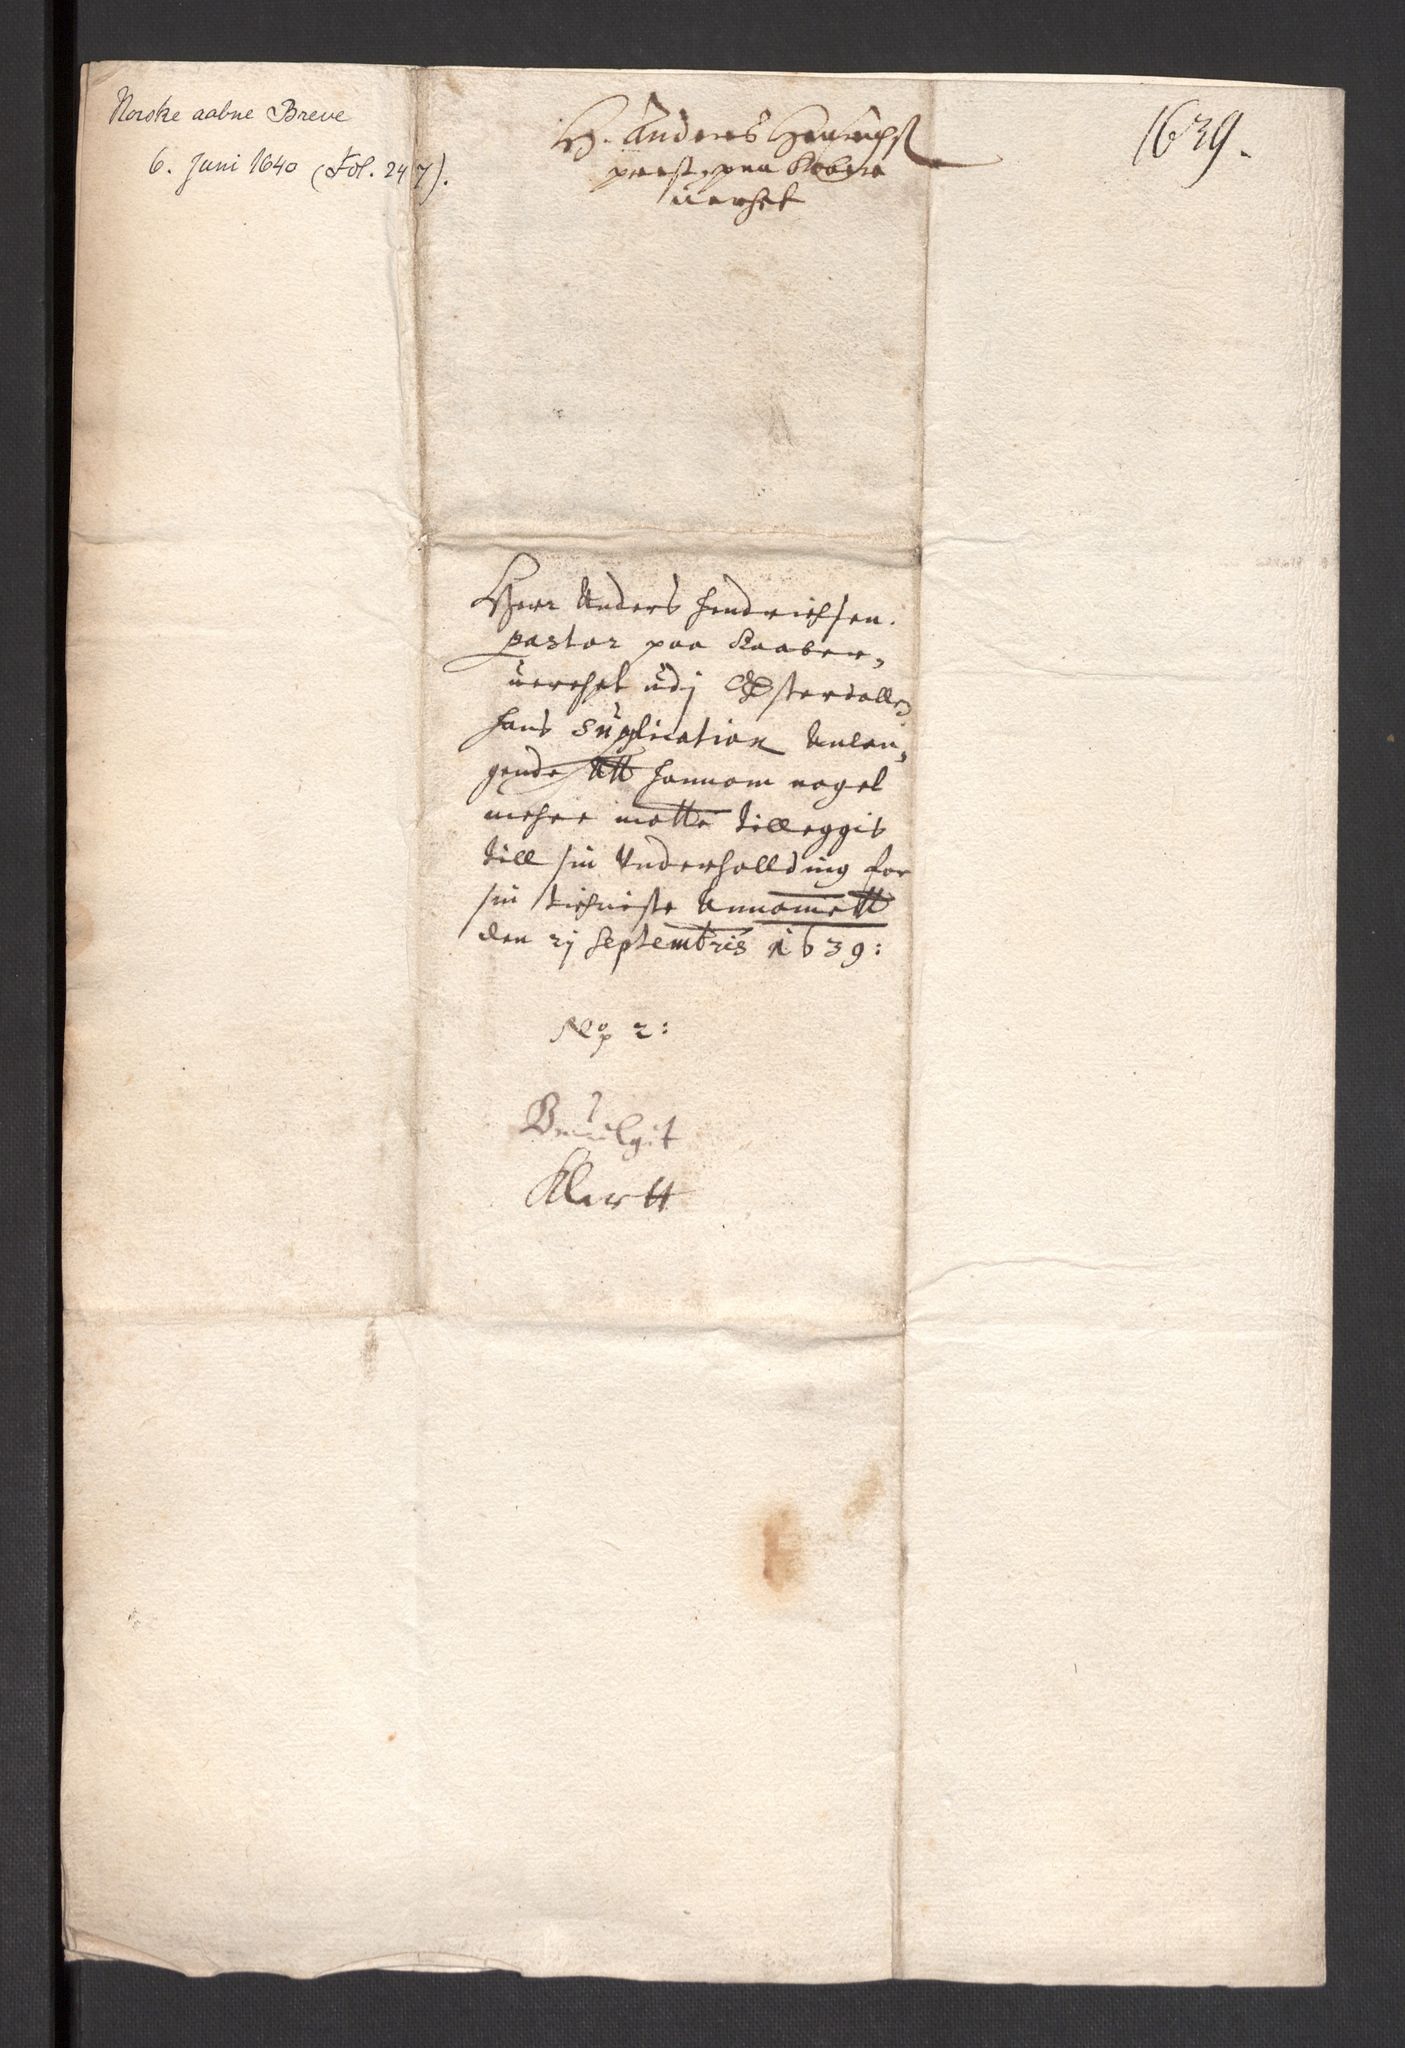 Norske aabne Breve
6. Juni 1640 (Fol. 247).
H. Anders Henrichs
prest paa Kober
uerket
1639.
Herr Anders Hendrichsen.
pastor paa Kaaber,
uerchet udj Østerdallen
hans Suplication Anlan,
gende Att hannom noget
mehre motte tilleggis
till sin Underhollding for
sin tieniste Annamett
den 21 Septembris 1639:
No 2:
Beuilgit
Klertt